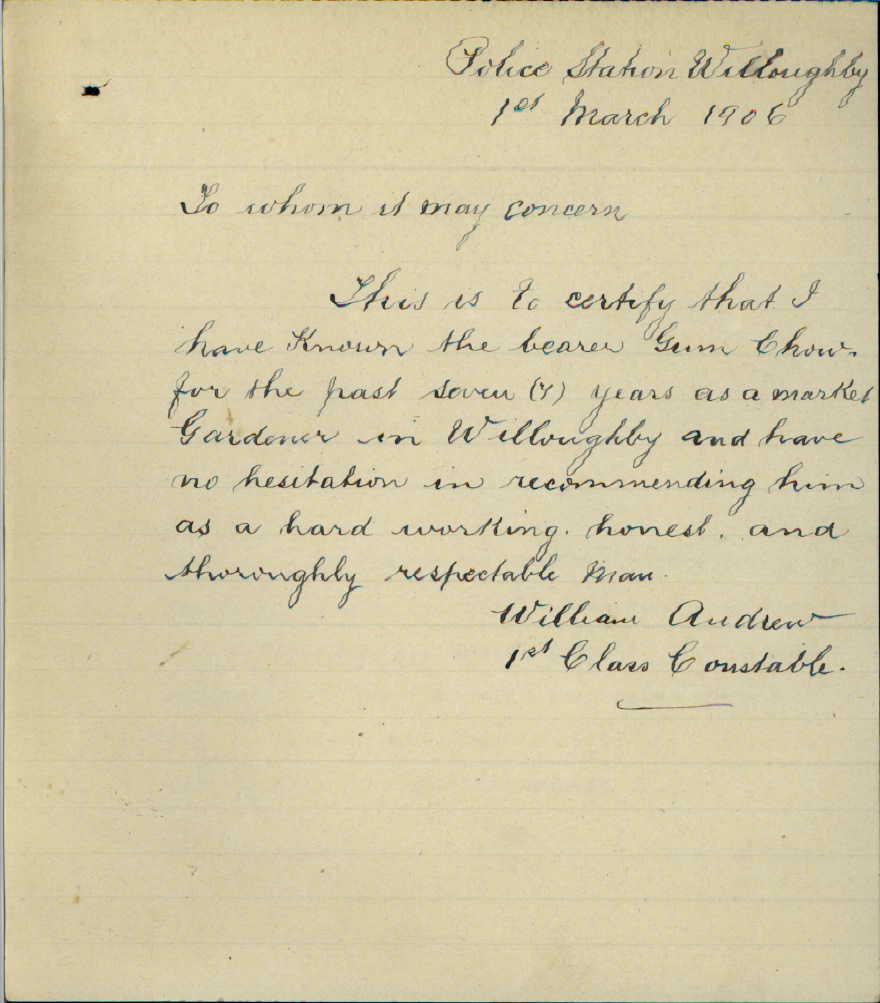 Police Station Willoughby
1st March 1906
To whom it may concern
This is to certify that I
have Known the bearer Gum Chow.
for the past seven (7) years as a market
Gardener in Willoughby and have
no hesitation in recommending him
as a hard working. honest. and
thoroughly respectable man.
William Andrew
1st Class Constable.